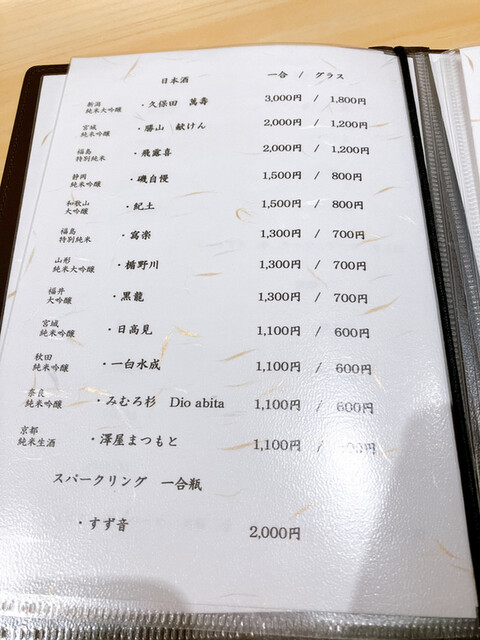 日本酒 一合 / グラス
新潟 純米大吟醸 ・久保田 萬壽 3,000円 / 1,800円
宮城 純米吟醸 ・勝山 献けん 2,000円 / 1,200円
福島 特別純米 ・飛露喜 2,000円 / 1,200円
静岡 純米吟醸 ・磯自慢 1,500円 / 800円
和歌山 大吟醸 ・紀土 1,500円 / 800円
福島 特別純米 ・寫楽 1,300円 / 700円
山形 純米大吟醸 ・楯野川 1,300円 / 700円
福井 大吟醸 ・黒龍 1,300円 / 700円
宮城 純米吟醸 ・日高見 1,100円 / 600円
秋田 純米吟醸 ・一白水成 1,100円 / 600円
奈良 純米吟醸 ・みむろ杉 Dio abita 1,100円 / 600円
京都 純米生酒 ・澤屋まつもと 1,100円 /
スパークリング 一合瓶
・すず音 2,000円